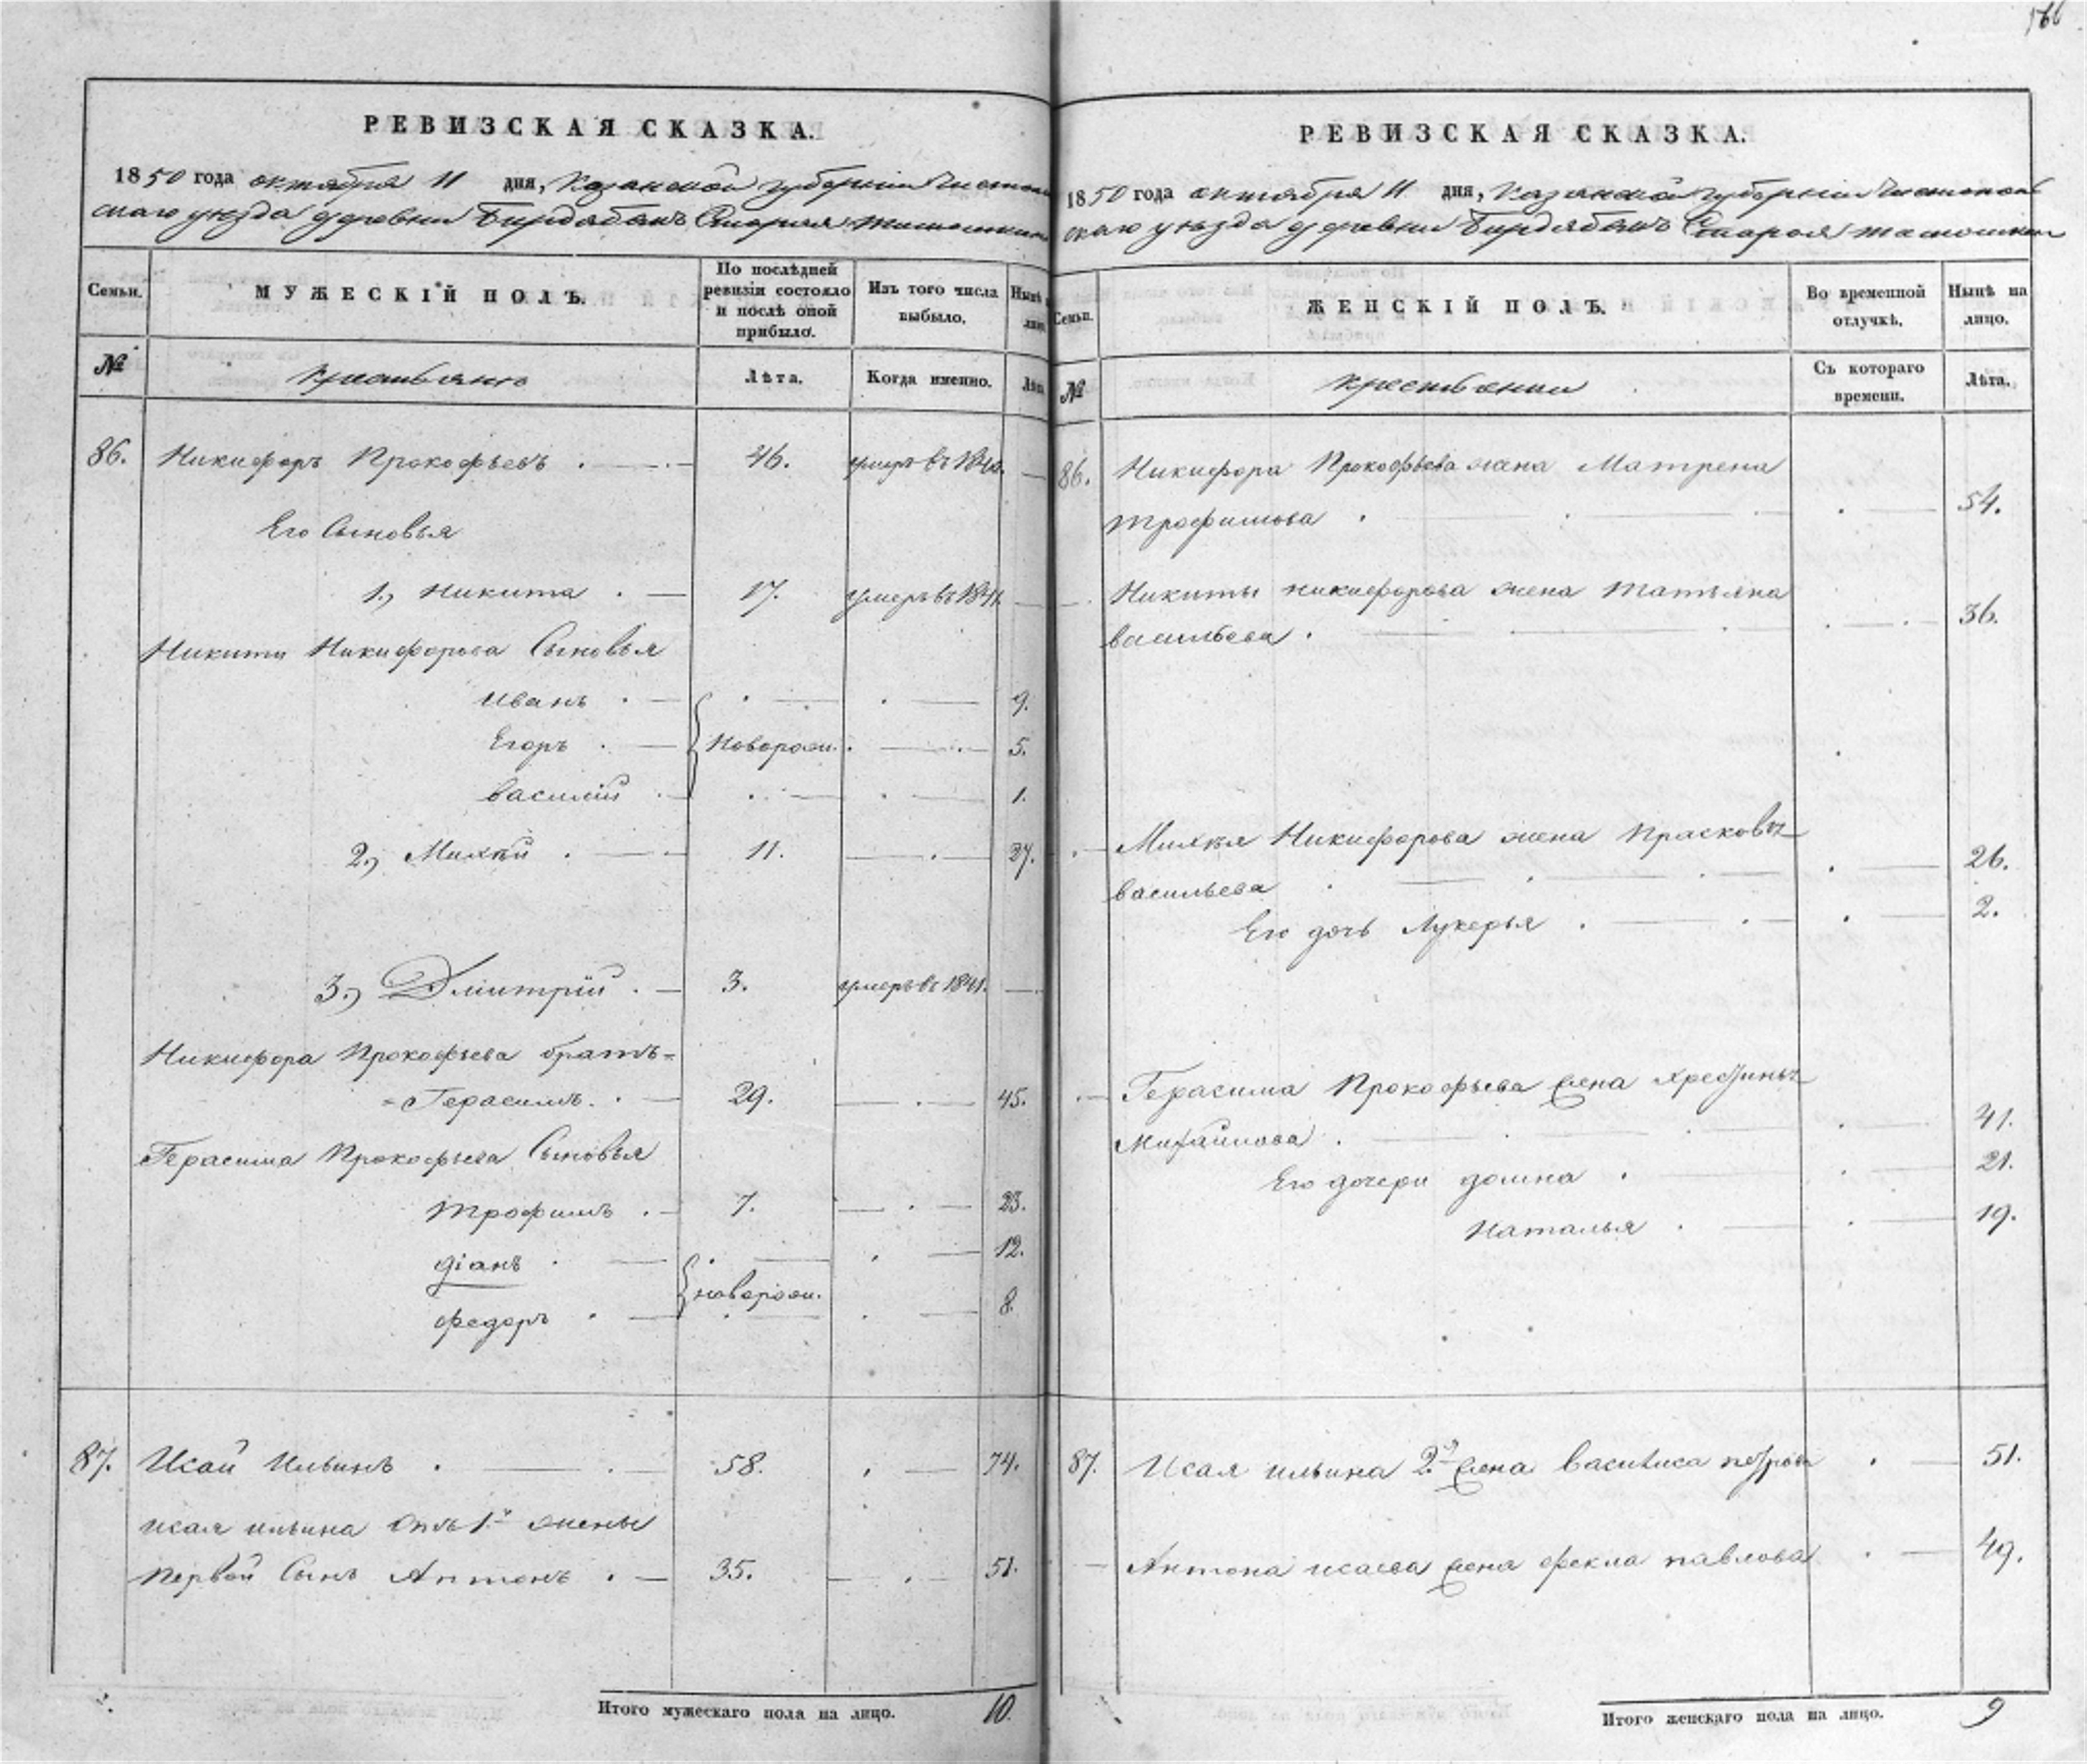 166
РЕВИЗСКАЯ СКАЗКА.
1850 года октября 11 дня, Казанской губернiи Чистополь
скаго уезда деревни Бирдебякъ Старая
Семьи.
МУЖЕСКІЙ ПОЛЪ.
По послѣдней ревизіи состояло и послѣ оной прибыло.
Изъ того числа выбыло.
Нынѣ на лицо.
№
крестьяне
Лѣта.
Когда именно.
Лѣта.
86. Никифоръ Прокофьевъ . 46. умеръ въ
Его Сыновья
1., Никита . 17. умеръ въ 1841.
Никиты Никифорова Сыновья
Иванъ . 9.
Егоръ . новорож. 5.
василій . 1.
2., Михѣй . 11. 27.
3., Дмитрій . 3. умеръ въ 1841.
Никифора Прокофьева братъ=
=Герасимъ. 29. 45.
Герасима Прокофьева Сыновья
трофимъ . 7. 23.
діанъ . 12.
новорож.
федоръ . 8.
87. Исай Ильинъ . 58. 74.
исая ильина отъ 1й жены
первой Сынъ Антонъ . 35. 51.
Итого мужескаго пола на лицо. 10.
РЕВИЗСКАЯ СКАЗКА.
1850 года октября 11 дня, Казанской губернiи Чистополь
скаго уезда деревни Бирдебякъ Старая
Семьи.
ЖЕНСКІЙ ПОЛЪ.
Во временной отлучкѣ.
Нынѣ на лицо.
№
крестьянки
Съ котораго времени.
Лѣта.
86. Никифора Прокофьева жена Матрена
трофимова . 54.
Никиты никифорова жена татьяна
васильева . 36.
Михѣя Никифорова жена Прасковья
васильева . 26.
Его дочь Лукерья . 2.
Герасима Прокофьева жена
Михайлова . 41.
Его дочери домна . 21.
Наталья . 19.
87. Исая ильина 2я жена василиса петрова 51.
Антона исаева жена фекла павлова 49.
Итого женскаго пола на лицо. 9